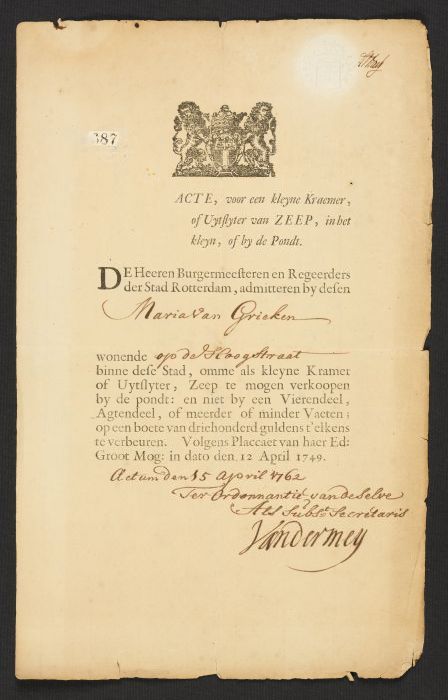 387
ACTE, voor een kleyne Kraemer,
of Uytslyter van ZEEP, in het
kleyn, of by de Pondt.
DE Heeren Burgermeesteren en Regeerders
der Stad Rotterdam, admitteren by desen
Maria van Grieken
wonende op de Hoogstraat
binne dese Stad, omme als kleyne Kramer
of Uytslyter, Zeep te mogen verkoopen
by de pondt: en niet by een Vierendeel,
Agtendeel, of meerder of minder Vaeten;
op een boete van driehonderd guldens t'elkens
te verbeuren. Volgens Placcaet van haer Ed:
Groot Mog: in dato den 12 April 1749.
Actum den 15 april 1762
Ter Ordonnantie van de selve
Als Subst Secretaris
Vandermey